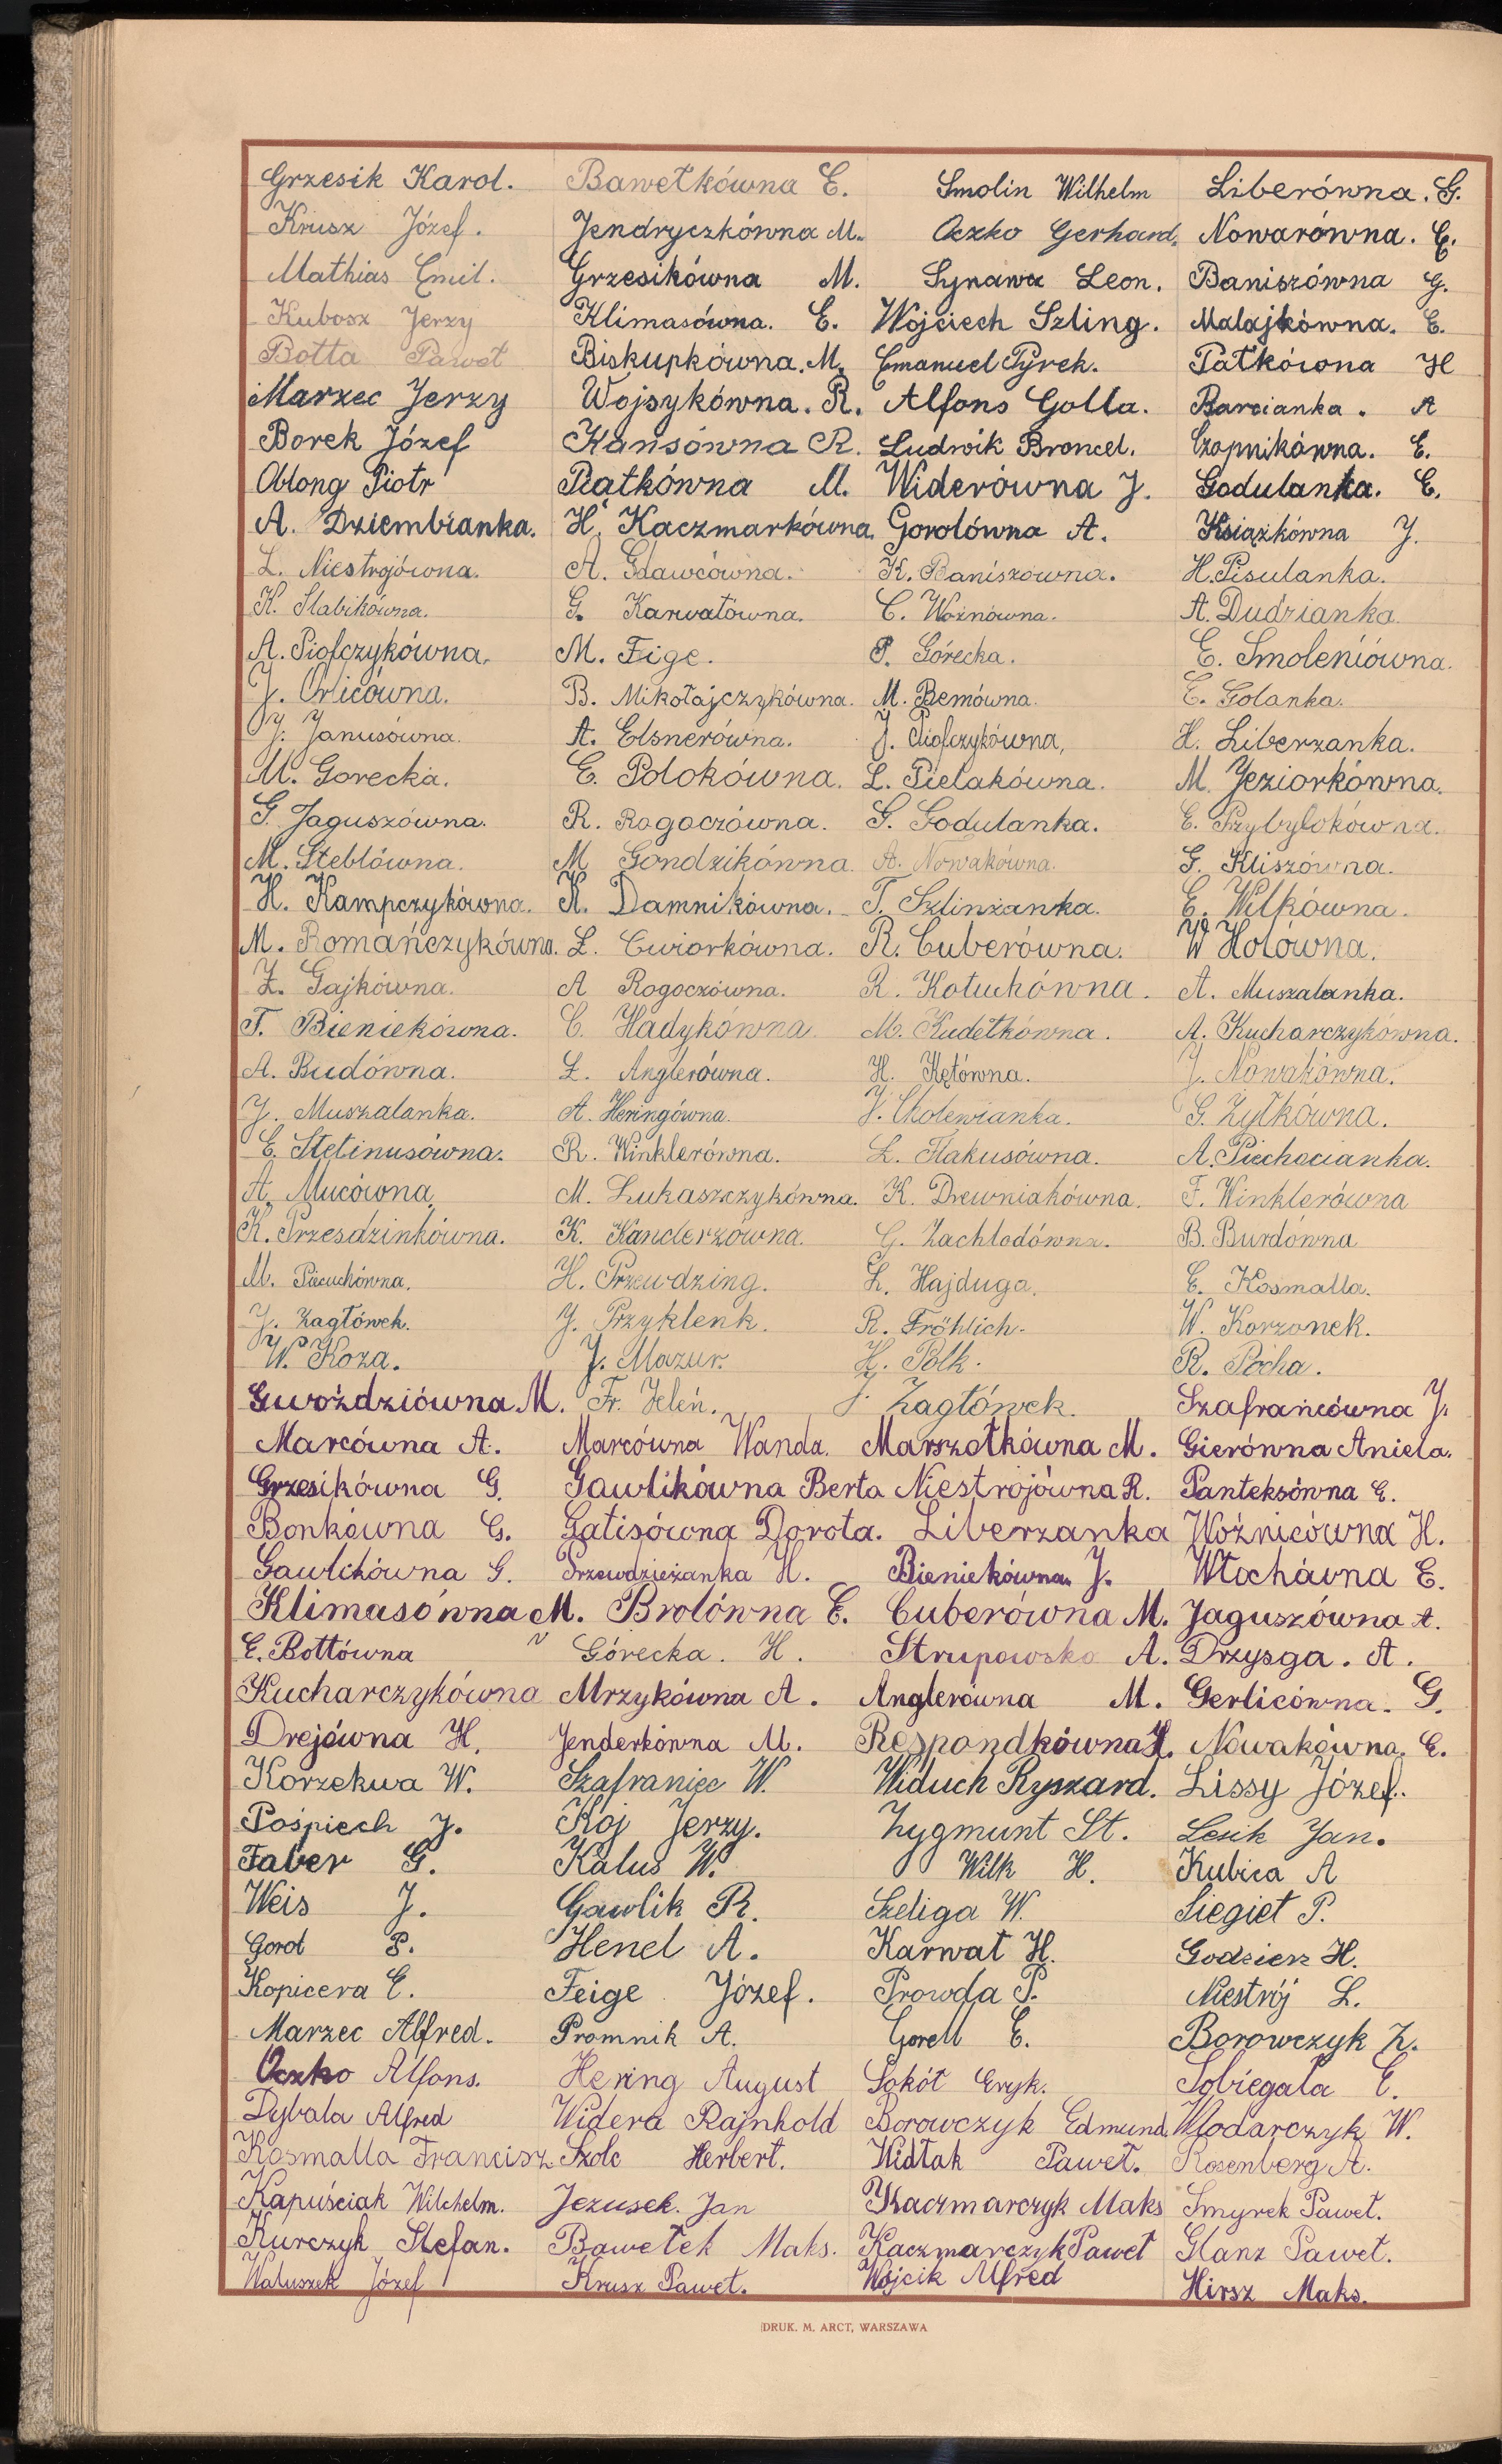 Grzesik Karol. Bawełkówna E. Smolin Wilhelm Liberówna. G.
Krusz Józef. Jendryczkówna M. Oczko Gerhard. Nowarówna. E.
Mathias Emil. Grzesikówna M. Synawa Leon. Baniszówna G.
Kubosz Jerzy Klimasówna. E. Wojciech Szling. Malajkówna. E.
Botta Paweł Biskupkówna. M. Emanuel Pyrek. Patkówna H
Marzec Jerzy Wojsykówna. R. Alfons Golla. Barcianka. A
Borek Józef Kansówna R. Ludwik Broncel. Czopnikówna. E.
Oblong Piotr Piątkówna M. Widerówna J. Godulanka. E.
A. Dziembianka. H. Kaczmarkówna. Gorolówna A. Książkówna J.
L. Niestrojówna. A. Gławcówna. K. Baniszówna. H. Pisulanka.
K. Słabikówna. G. Karwatówna. C. Woźnówna. A. Dudzianka.
A. Piofczykówna. M. Fige. P. Górecka. E. Smoleniówna.
J. Orlicówna. B. Mikołajczykówna. M. Bemówna. E. Golanka.
J. Janusówna. A. Elsnerówna. J. Piofczykówna, H. Liberzanka.
M. Gorecka. E. Polokówna. L. Pielakówna. M. Jeziorkówna.
G. Jaguszówna. R. Rogoczówna. G. Godulanka. E. Przybyłokówna.
M. Steblówna. M Gondzikówna. A. Nowakówna. G. Kliszówna.
H. Kampczykówna. K. Damnikówna. T. Szlinzanka. E. Wilkówna.
M. Romańczykówna. L. Cwiorkówna. R. Cuberówna. W Holówna.
Z. Gajkówna. A Rogoczówna. R. Kotuchówna. A. Muszalanka.
T. Bieniekówna. C. Hadykówna. M. Kudełkówna. A. Kucharczykówna.
A. Budówna. L. Anglerówna. H. Kętówna. J. Nowakówna.
J. Muszalanka. A. Heringówna. J. Cholewianka. G. Żyłkówna.
E. Stetinusówna. R. Winklerówna. L. Flakusówna. A. Piechocianka.
A. Mucówna. M. Lukaszczykówna. K. Drewniakówna. F. Winklerówna
K. Przesdzinkówna. K. Kanderzówna. G. Zachlodówna. B. Burdówna
M. Piecuchówna. H. Przewdzing. L. Hajduga. E. Kosmalla.
J. Zagłówek. J. Przyklenk. R. Fröhlich. W. Korzonek.
W. Koza. J. Mazur. H. Polk. R. Pocha.
Gwoździówna M. Fr. Jeleń. J. Zagłówek. Szafrańcówna J.
Marcówna A. Marcówna Wanda. Marszołkówna M. Gierówna Aniela.
Grzesikówna G. Gawlikówna Berta Niestrojówna R. Panteksówna E.
Bonkówna G. Gatisówna Dorota. Liberzanka Woźnicówna H.
Gawlikówna G. Przewdzieżanka H. Bieniekówna J. Włochówna E.
Klimasówna M. Brolówna E. Cuberówna M. Jaguszówna A.
E. Bottówna Górecka. H. Strupowska A. Drzysga. A.
Kucharczykówna Mrzykówna A. Anglerówna M. Gerlicówna. G.
Drejówna H. Jenderkówna M. Respondkówna H. Nowakówna. E.
Korzekwa W. Szafraniec W. Widuch Ryszard. Lissy Józef.
Pośpiech J. Koj Jerzy. Zygmunt St. Lesik Jan.
Faber G. Kalus W. Wilk H. Kubica A
Weis J. Gawlik R. Szeliga W. Siegiet P.
Gorol P. Henel A. Karwat H. Godzierz H.
Kopicera E. Feige Józef. Prowda P. Niestrój L.
Marzec Alfred. Promnik A. Gorell E. Borowczyk Z.
Oczko Alfons. Hering August Sokół Eryk. Sobiegała E.
Dybala Alfred Widera Rajnhold Borowczyk Edmund. Włodarczyk W.
Kosmalla Francisz. Szolc Herbert. Widłak Paweł. Rosenberg A.
Kapuściak Wilchelm. Jezusek. Jan Kaczmarczyk Maks Smyrek Paweł.
Kurczyk Stefan. Bawełek Maks. Kaczmarczyk Paweł Glanz Paweł.
Waluszek Józef Krusz Paweł. Wójcik Alfred Hirsz Maks.
DRUK. M. ARCT, WARSZAWA